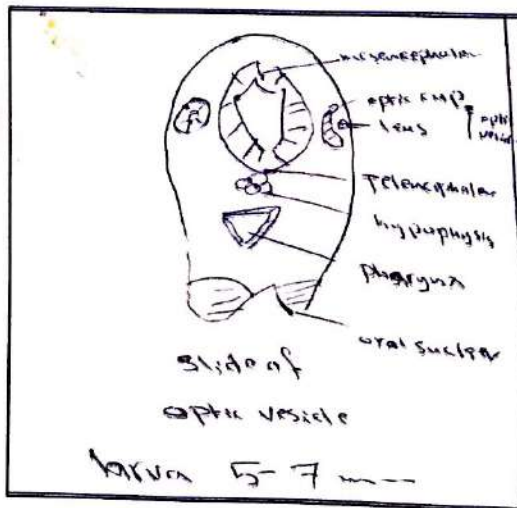 mesencephalon
optic cup
lens
optic vesicle
Telencephalon
hypophysis
pharynx
oral sucker
slide of
optic vesicle
larva 5-7 mm